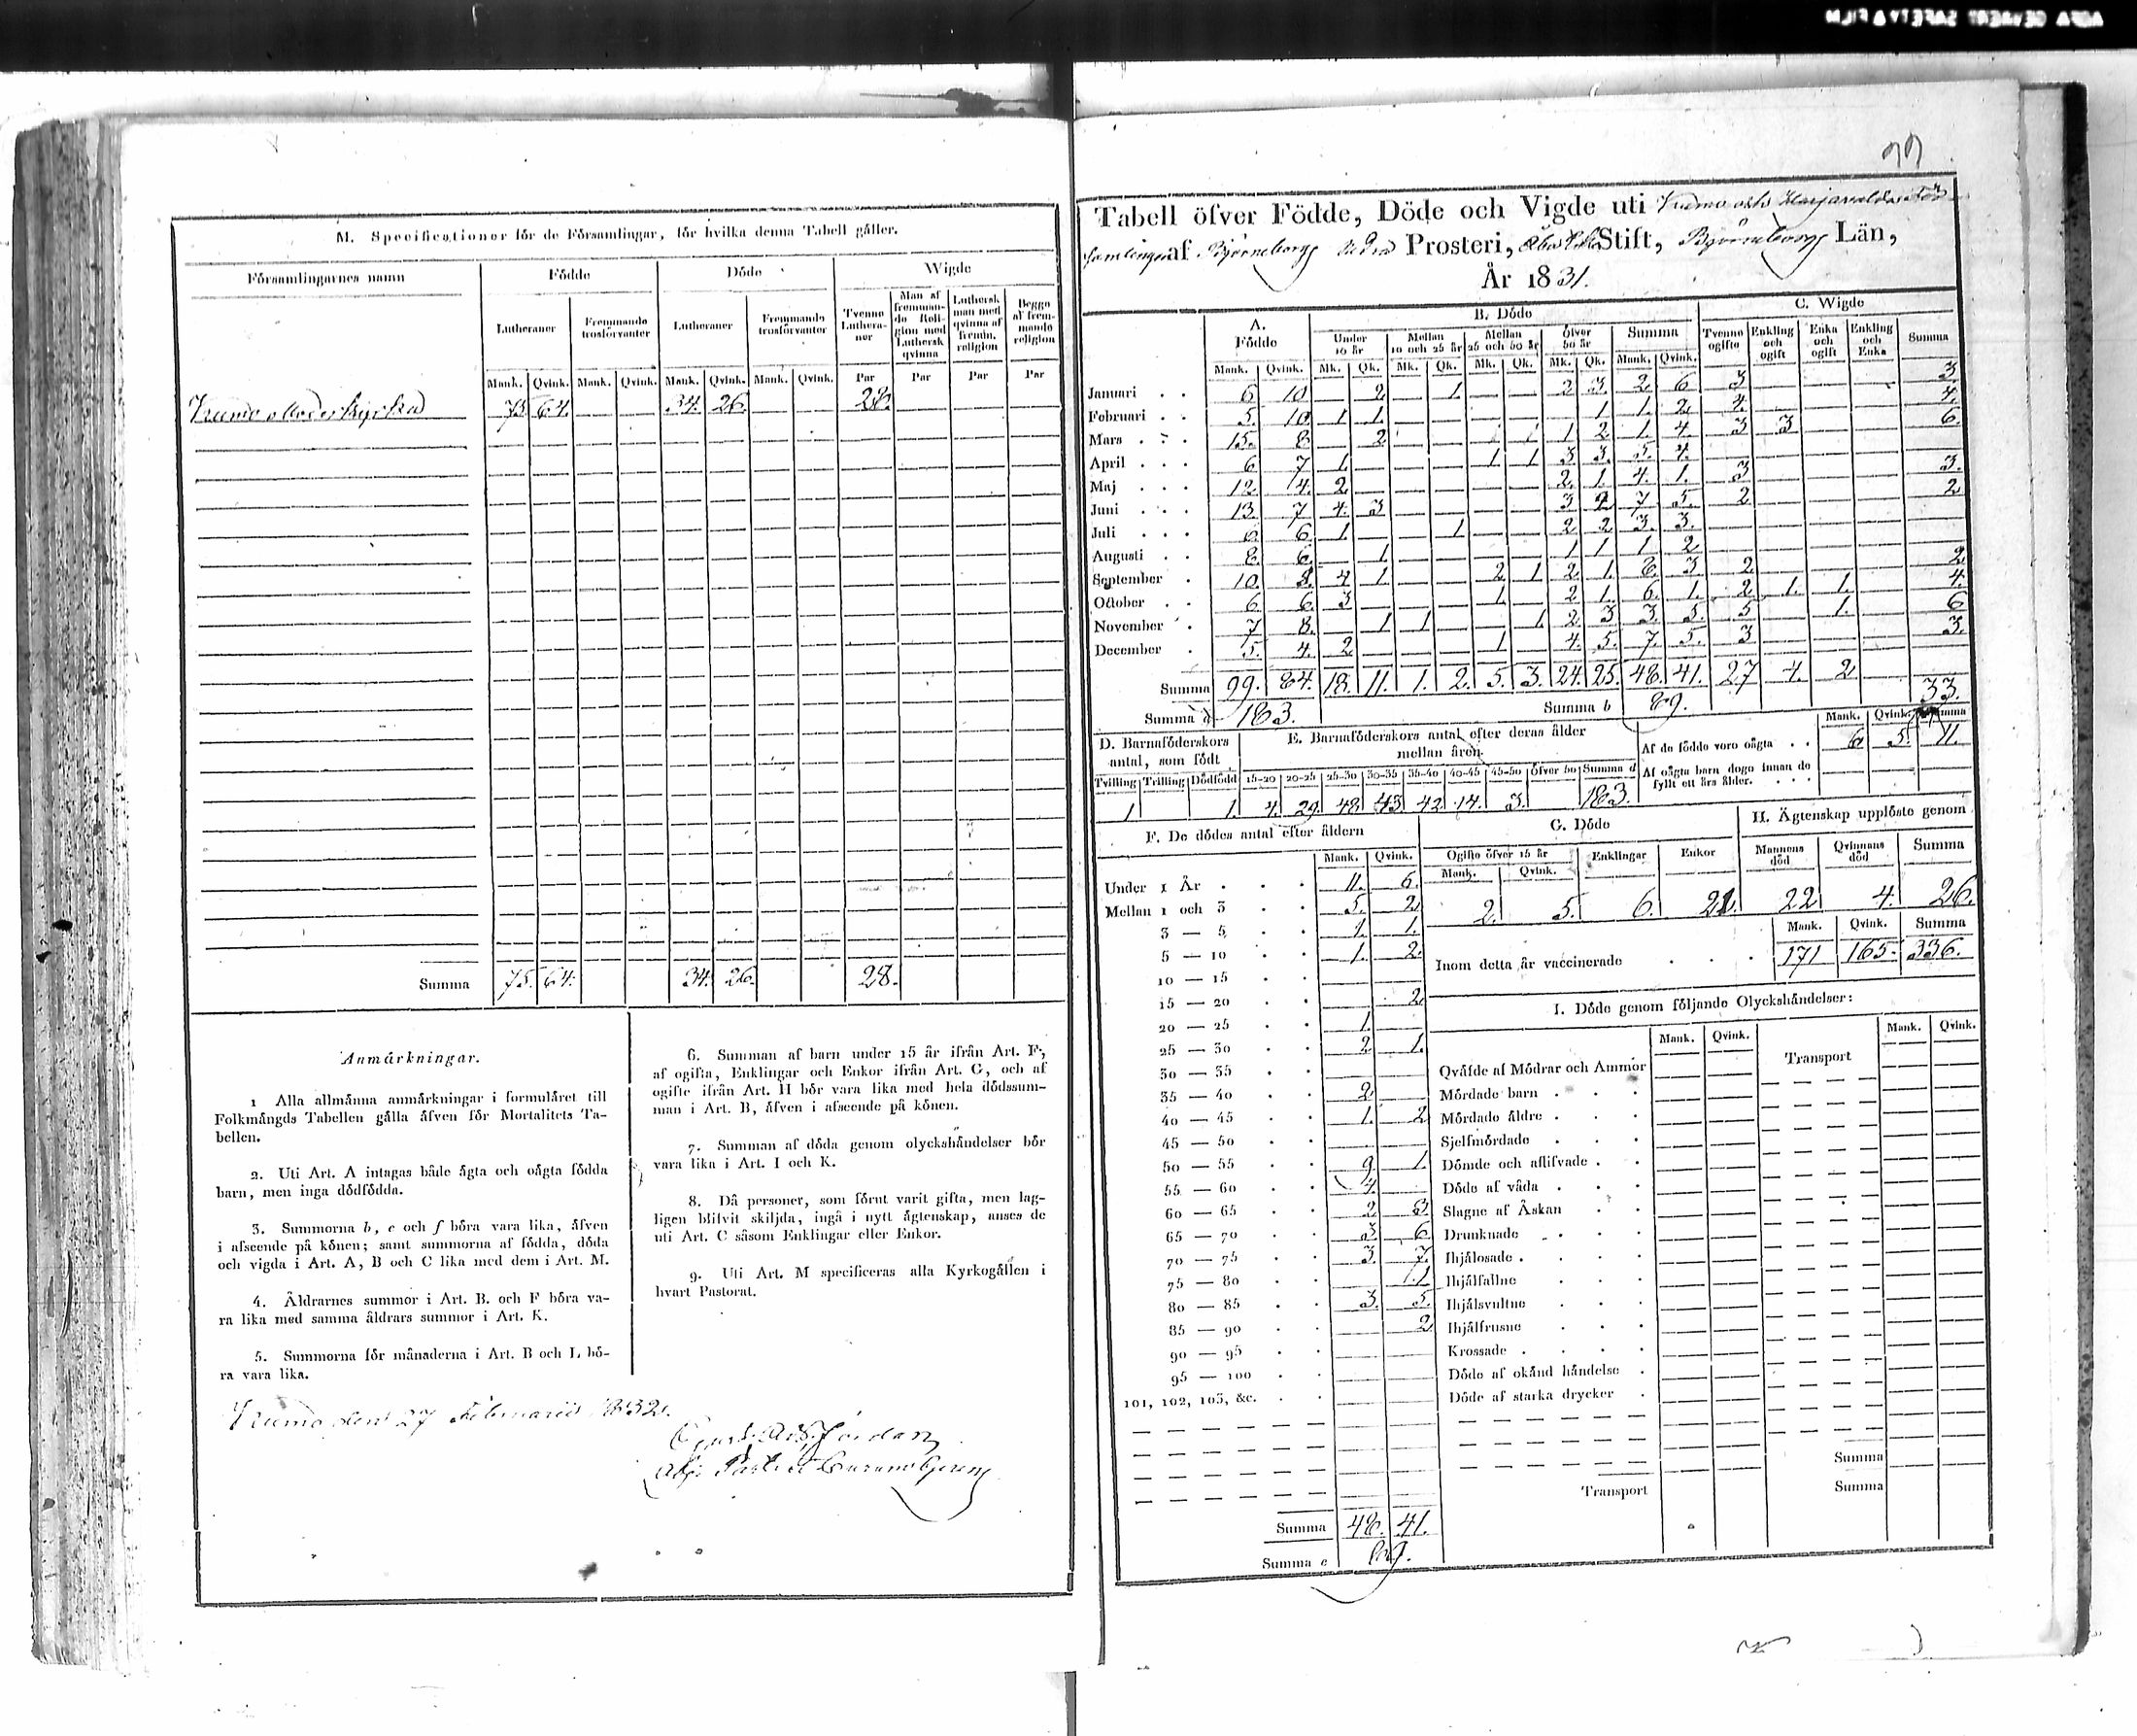 M. Specificationer för de Församlingar, för hvilka denna Tabell gäller.
Församlingarnes namn Födde Döde Wigde
Lutheraner Fremmande trosförvanter Lutheraner Fremmande trosförvanter Tvenne Lutheraner Man af fremmande Religion med Luthersk qvinna Luthersk man med qvinna af fremm. religion Begge af fremmande religion
Mank. Qvink. Mank. Qvink. Mank. Qvink. Mank. Qvink. Par Par Par Par
Kumo Moderkyrka 75 64. 34. 26. 28.
Summa 75. 64. 34. 26. 28.
Anmärkningar.
1 Alla allmänna anmärkningar i formuläret till
Folkmängds Tabellen gälla äfven för Mortalitets Ta-
bellen.
2. Uti Art. A intagas både ägta och oägta födda
barn, men inga dödfödda.
3. Summorna b, e och f böra vara lika, äfven
i afseende på könen; samt summorna af födda, döda
och vigda i Art. A, B och C lika med dem i Art. M.
4. Åldrarnes summor i Art. B. och F böra va-
ra lika med samma åldrars summor i Art. K.
5. Summorna för månaderna i Art. B och L bö-
ra vara lika.
6. Summan af barn under 15 år ifrån Art. F,
af ogifta, Enklingar och Enkor ifrån Art. G, och af
ogifte ifrån Art. H bör vara lika med hela dödssum-
man i Art. B, äfven i afseende på könen.
7. Summan af döda genom olyckshändelser bör
vara lika i Art. I och K.
8. Då personer, som förut varit gifta, men lag-
ligen blifvit skiljda, ingå i nytt ägtenskap, anses de
uti Art. C såsom Enklingar eller Enkor.
9. Uti Art. M specificeras alla Kyrkogällen i
hvart Pastorat.
Kumo den 27 Februarii 1832.
Tabell öfver Födde, Döde och Vigde uti Kumo och Harjavalda För-
samlingar af Björneborgs Nedra Prosteri, Åbo Stift, Björneborgs Län,
År 1831.
A. Födde B. Döde C. Wigde
Under 10 år Mellan 10 och 25 år Mellan 25 och 50 år Öfver 50 år Summa Tvenne ogifte Enkling och ogift Enka och ogift Enkling och Enka Summa
Mank. Qvink. Mk. Qk. Mk. Qk. Mk. Qk. Mk. Qk. Mank. Qvink.
Januari 6 10 2 1 2 3 2 6 3 3
Februari 5. 10. 1 1. 1 1. 2 4. 4.
Mars 15. 8 2 1 1 2 1. 4. 3 3 6.
April 6 7 1. 1 1 3 3. 5. 4.
Maj 12 4. 2 2. 1. 4. 1. 3 3.
Juni 13. 7 4. 3 3 2 7 5. 2 2
Juli 6 6. 1. 1 2 2 3. 3.
Augusti 8. 6. 1. 1 1 1 2
September 10. 8. 4 1. 2 1 2. 1. 8. 3. 2 2
October 6. 6. 3 1. 2 1. 6. 1. 2 1. 1. 4.
November 7 8. 1 1 1. 2 3 3. 5. 5 1. 6
December 5. 4. 2 1 4. 5. 7. 5. 3 3.
Summa 99. 84. 18. 11. 1. 2. 5. 3. 24. 25. 48. 41. 27 4. 2 33.
Summa a 183. Summa b 89.
D. Barnaföderskors antal, som födt E. Barnaföderskors antal efter deras ålder mellan åren Mank. Qvink. Summa
Af de födde voro oägta . . 6 5. 11.
Tvilling Trilling Dödfödd 15-20 20-25 25-30 30-35 35-40 40-45 45-50 Öfver 50 Summa d
Af oägta barn dogo innan de fyllt ett års ålder.
1 1. 4. 29. 48. 43. 42. 14. 3. 183.
F. De dödes antal efter åldern
Mank. Qvink.
Under 1 År 11. 6.
Mellan 1 och 3 5. 2
3 — 5 1. 1.
5 — 10 1. 2.
10 — 15
15 — 20 2
20 — 25 1.
25 — 30 2 1.
30 — 35
35 — 40 2
40 — 45 1. 2
45 — 50
50 — 55 9. 1.
55 — 60 4.
60 — 65 2 3.
65 — 70 3 6.
70 — 75 3. 7.
75 — 80 1.
80 — 85 3. 5.
85 — 90 2
90 — 95
95 — 100
101, 102, 103, &c.
Summa 48. 41.
Summa e 89.
G. Döde
Ogifte öfver 15 år Enklingar Enkor
Mank. Qvink.
2. 5. 6.
H. Ägtenskap upplöste genom
Mannens död Qvinnans död Summa
22 4. 26.
Mank. Qvink. Summa
Inom detta år vaccinerade 171 165. 336.
I. Döde genom följande Olyckshändelser:
Mank. Qvink. Transport Mank. Qvink.
Qväfde af Mödrar och Ammor
Mördade barn
Mördade äldre
Sjelfmördade
Dömde och aflifvade
Döde af våda
Slagne af Åskan
Drunknade
Ihjälosade
Ihjälfallne
Ihjälsvultne
Ihjälfrusne
Krossade
Döde af okänd händelse
Döde af starka drycker
Summa
Transport Summa